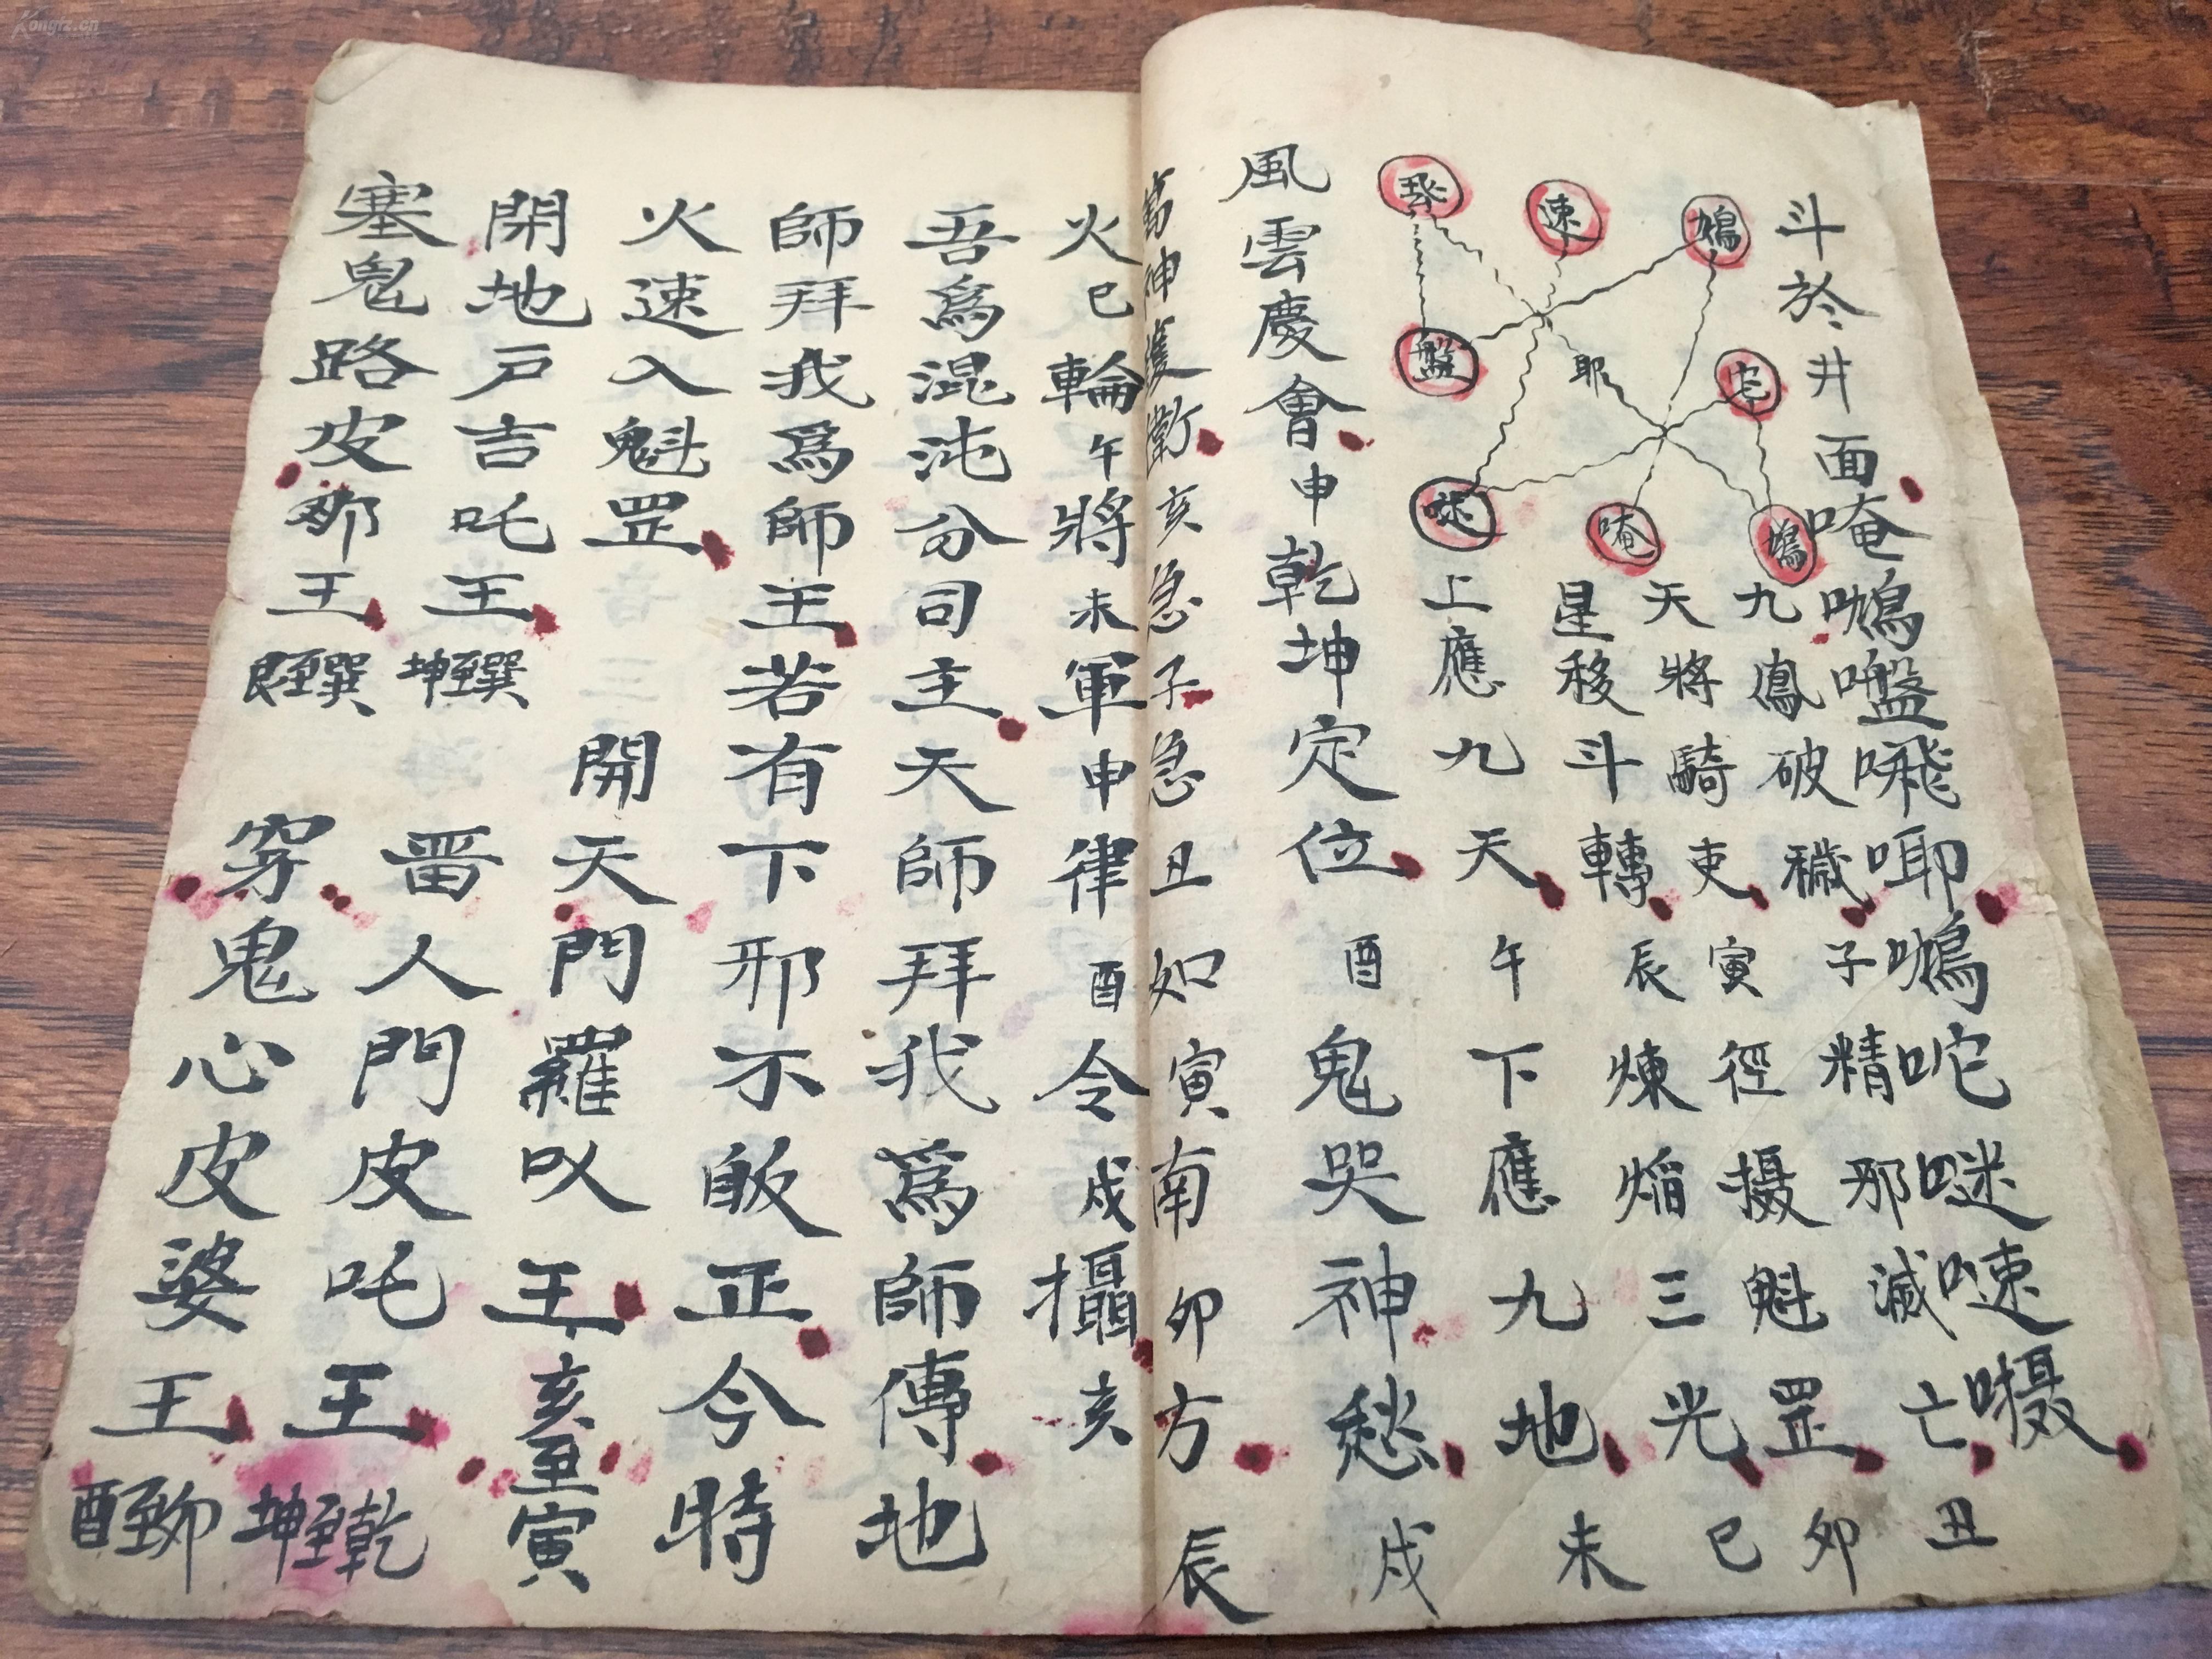 斗於井面唵𠿟𡃑𠺕唧𠿟咜𠹭𠻛囁
九鳳破穢子精那滅亡丑
天將騎吏寅徑摄魁罡卯
星移斗轉辰煉焰三光巳
上應九天午下應九地未
速
盤
耶
唵
風雲慶會申乾坤定位酉鬼哭神愁戌
萬神護衛亥急子急丑如寅南卯方辰
火巳輪午將未軍申律酉令戌攝亥
吾爲混沌分司主天師拜我爲師傳地
師拜我爲師王若有下邪不皈正今特
火速入魁罡
開天門羅以王亥至寅
閉地戸吉吒王坤至巽
畱人門皮吒王坤至乾
塞鬼路皮那王艮至巽
穿鬼心皮婆王酉至卯
Kongfz.cn